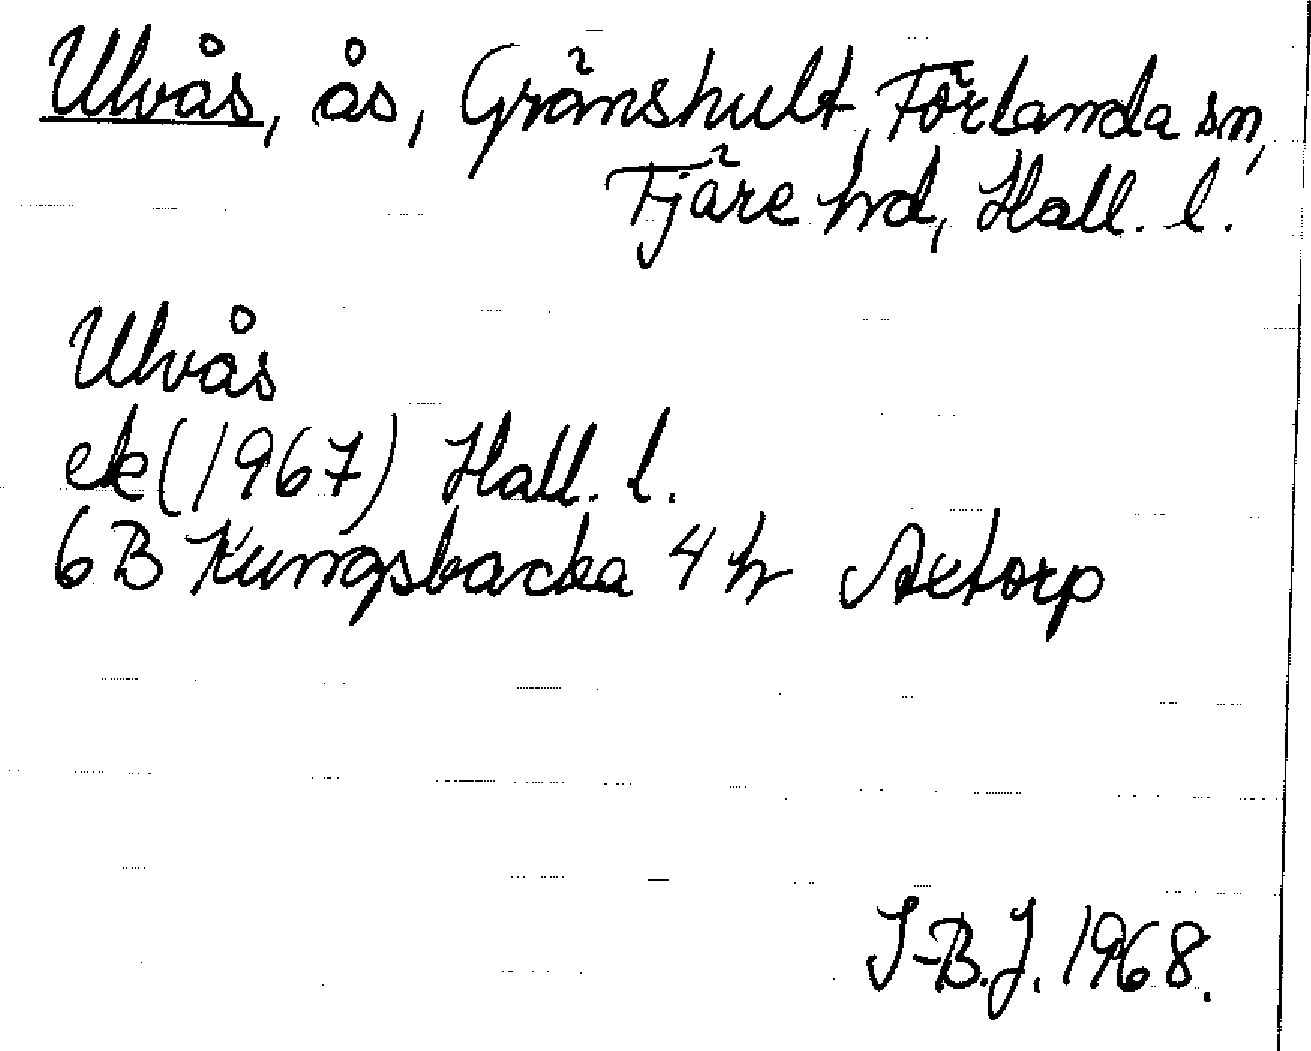 Ulvås, ås, Gränshult, Förlanda sn,
Fjäre hd, Hall. l.
Ulvås
ek (1967) Hall. l.
6B Kungsbacka 4 h Axtorp
I-B.J. 1968.